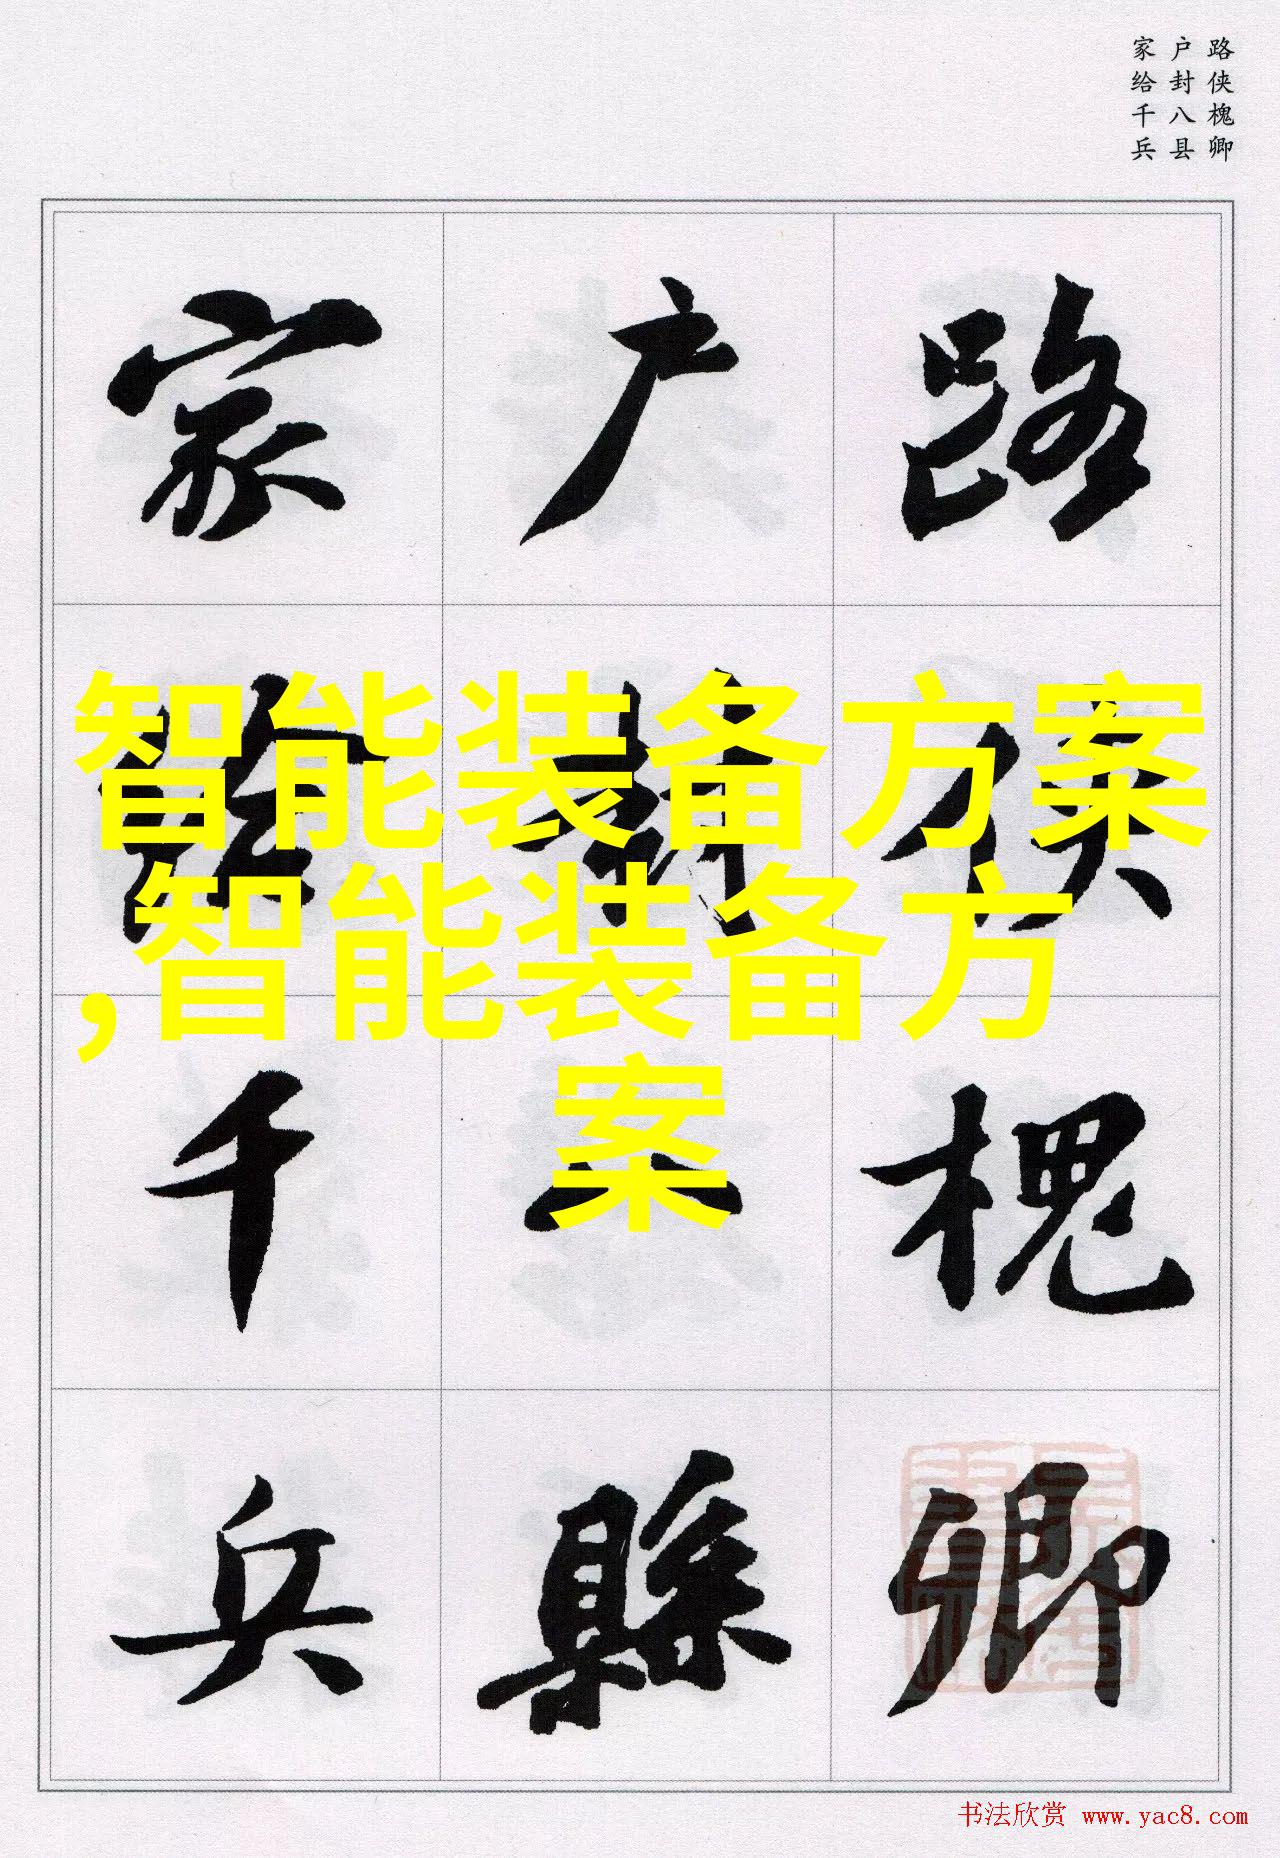 路侠槐卿
户封八县
家给千兵
路
侠
槐
卿
户
封
八
縣
家
给
千
兵
智能装备方案
,智能装备方
案
书法欣赏 www.yac8.com